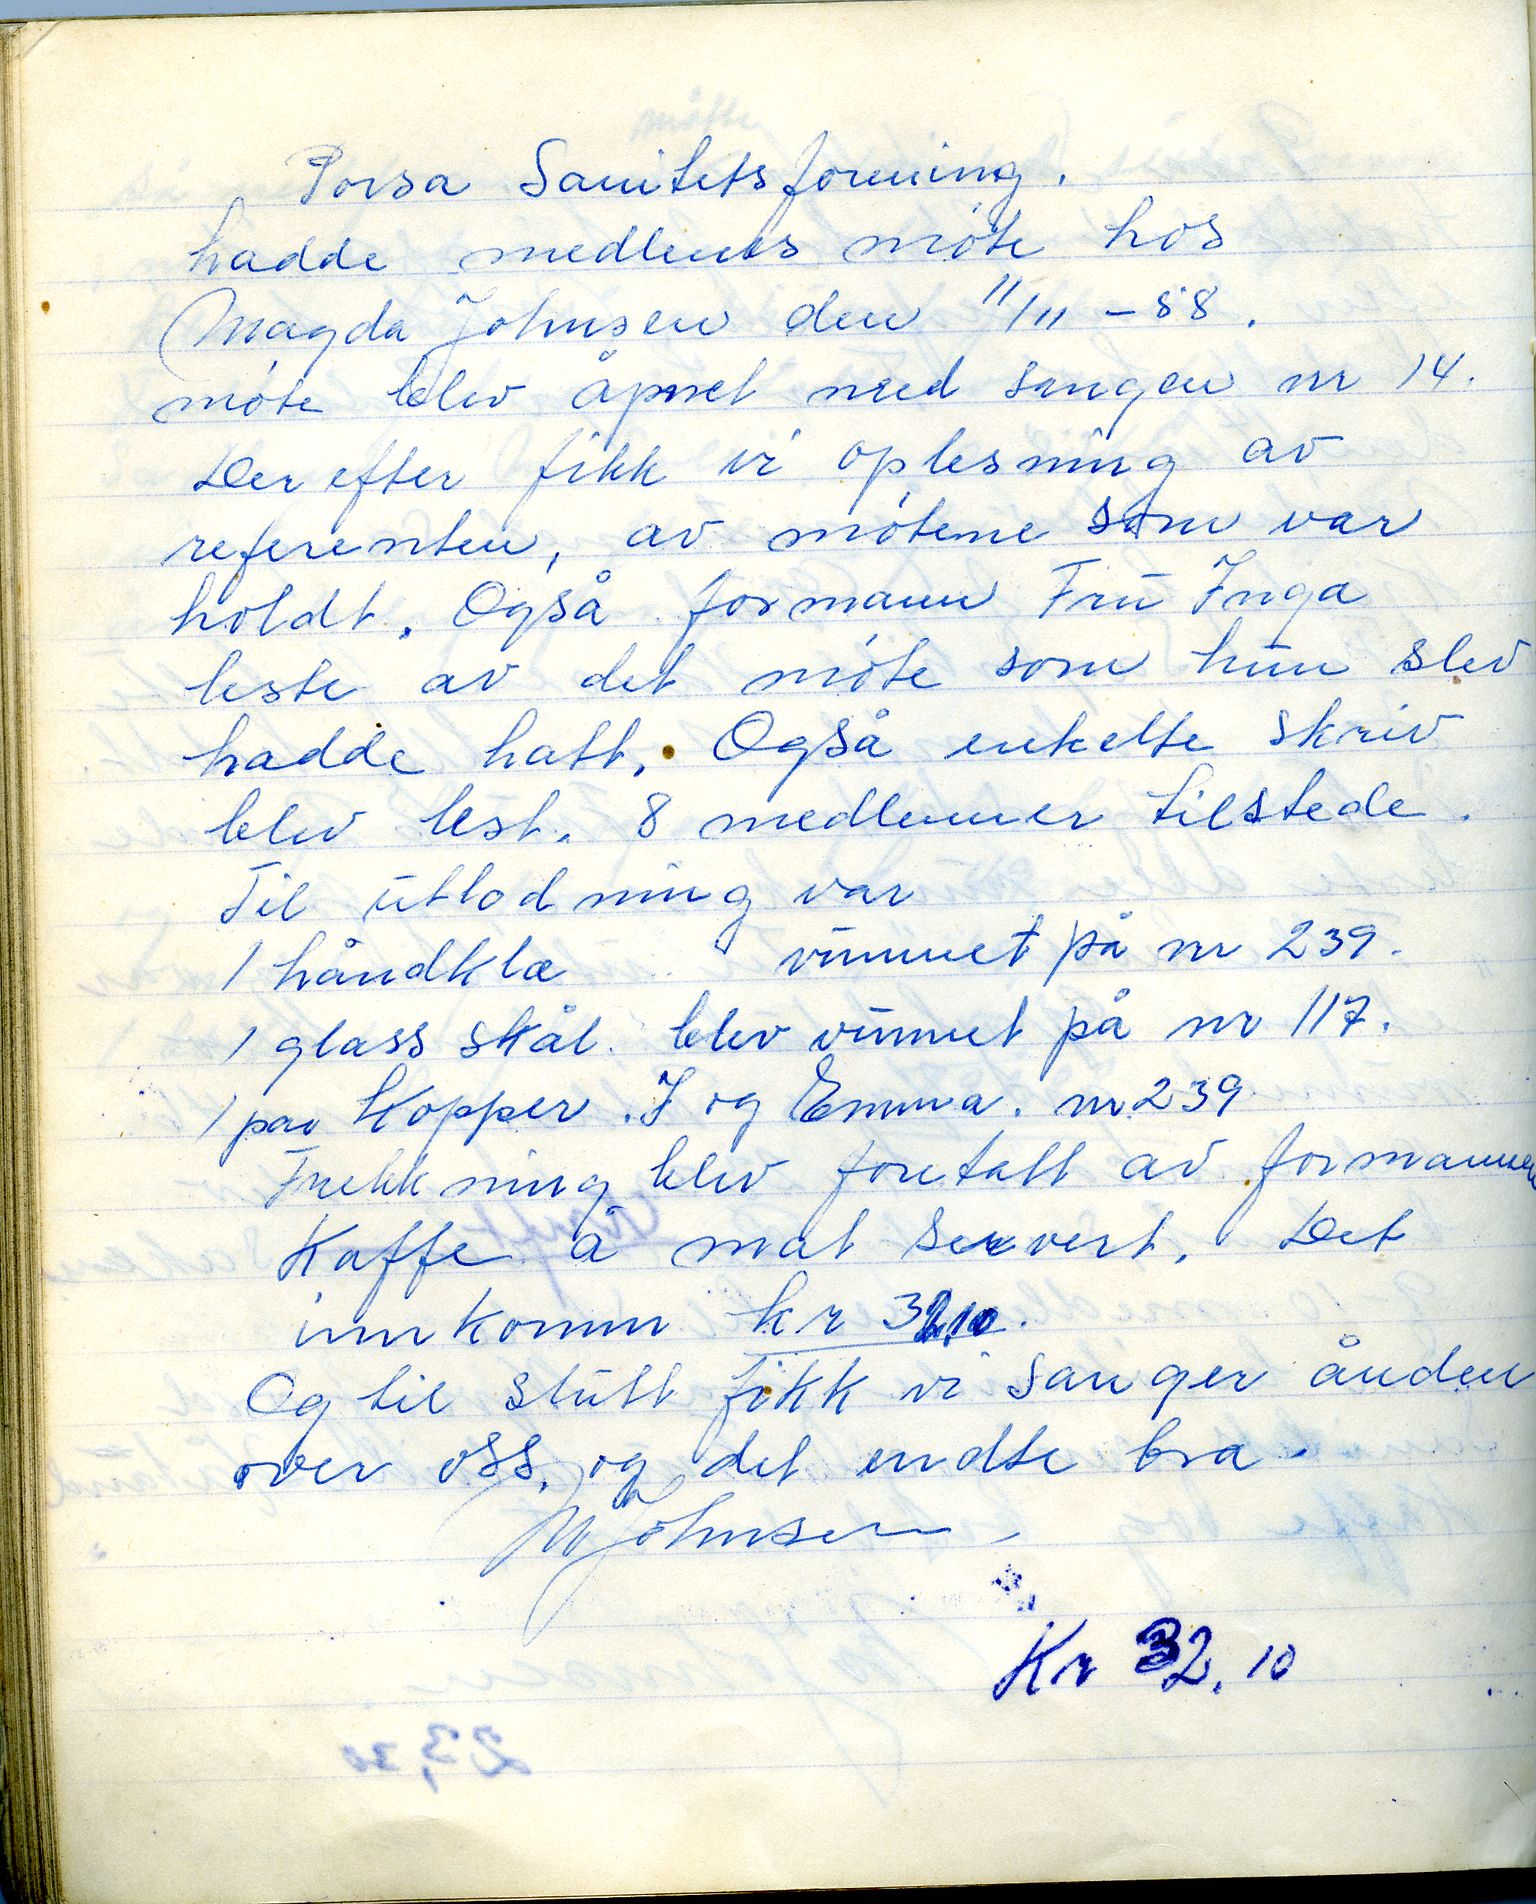 Porsa Sanitetsforening.
hadde medlems møte hos
Magda Johnsen den 11/11 - 58.
møte blev åpnet med sangen nr 14.
Der efter fikk vi oplesning av
referenten, av møtene som var
holdt. Også formann Fru Inga
leste av det møte som hun slev
hadde hatt. Også enkelte skriv
blev lest. 8 medlemmer tilstede.
Til utlodning var
1 håndklæ vunnet på nr 239.
1 glass skål. blev vunnet på nr 117.
1 par Kopper. I og Emma. nr 239
Trekkning blev foretatt av formannen
Kaffe å mat servert. Det
innkomm kr 32,10.
Og til slutt fikk vi sanger ånden
over oss, og det endte bra.
M Johnsen
Kr 32.10